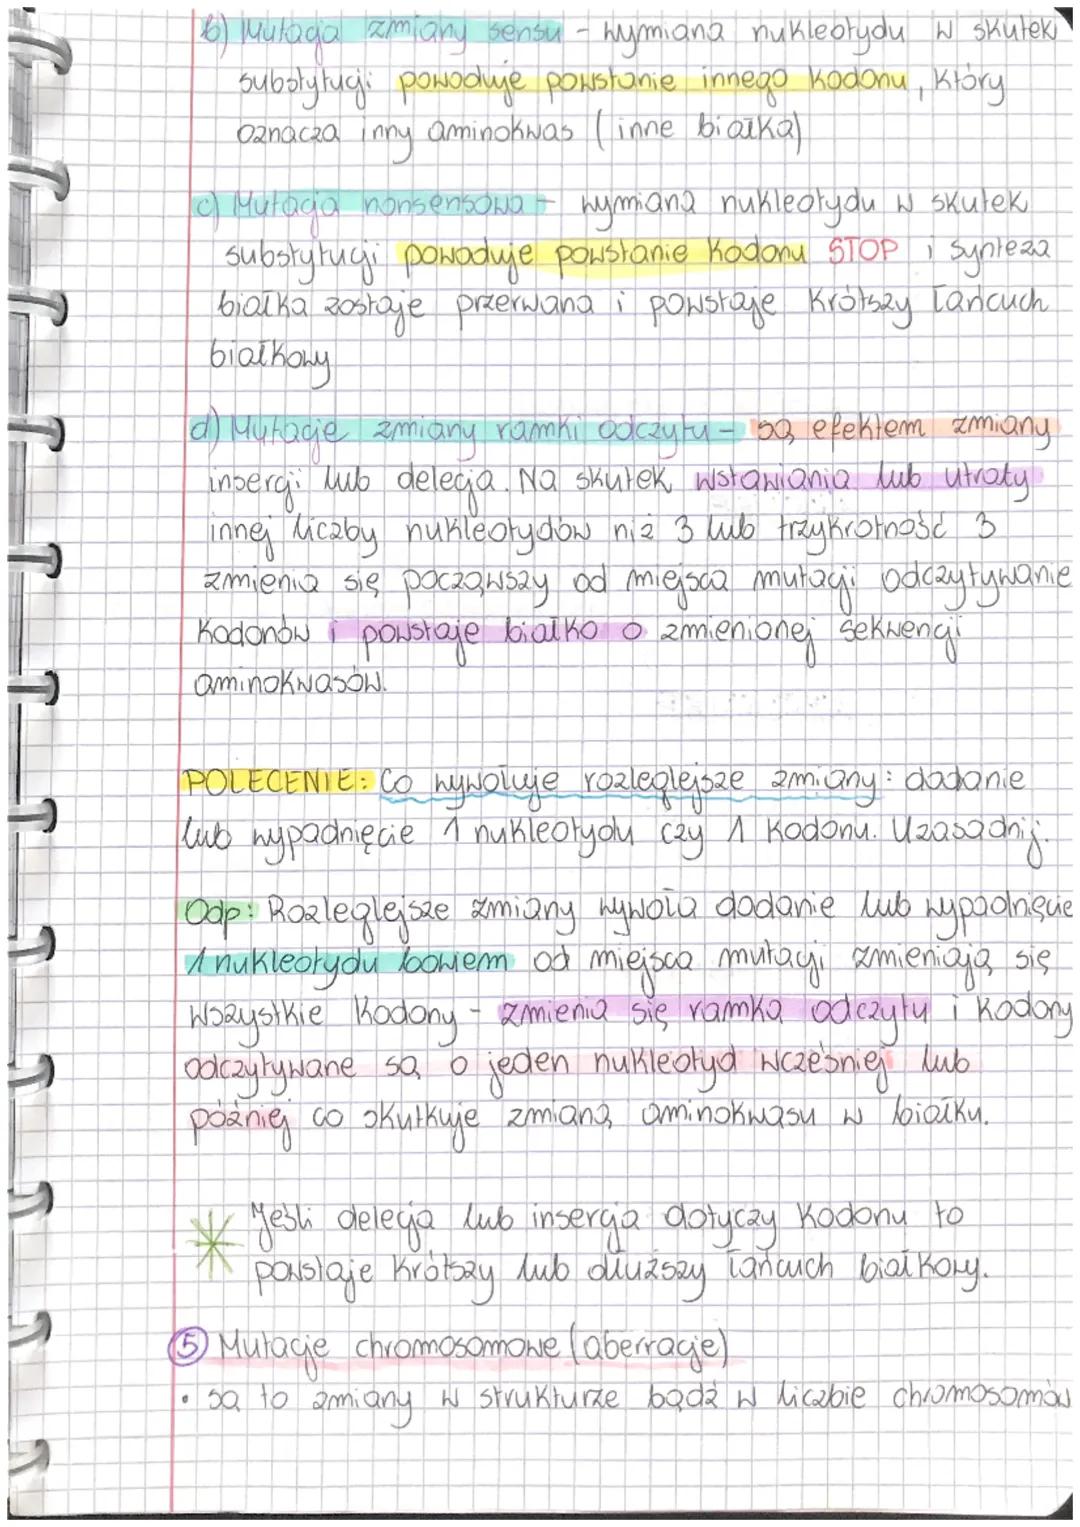 b) Mutacja zmiany sensu - wymiana nukleotydu w skutek
substytucji powoduje powstanie innego kodonu, który
oznacza inny aminokwas (inne białka)
c) Mutacja nonsensowna - wymiana nukleotydu w skutek
substytucji powoduje powstanie kodonu STOP i synteza
białka zostaje przerwana i powstaje krótszy łańcuch
białkowy
d) Mutacje zmiany ramki odczytu - są efektem zmiany
insercji lub delecja. Na skutek wstawiania lub utraty
innej liczby nukleotydów niż 3 lub trzykrotność 3
zmienia się począwszy od miejsca mutacji odczytywanie
kodonów i powstaje białko o zmienionej sekwencji
aminokwasów.
POLECENIE: Co wywołuje rozleglejsze zmiany: dodanie
lub wypadnięcie 1 nukleotydu czy 1 kodonu. Uzasadnij.
Odp: Rozleglejsze zmiany wywoła dodanie lub wypadnięcie
1 nukleotydu bowiem od miejsca mutacji zmieniają się
wszystkie kodony - zmienia się ramka odczytu i kodony
odczytywane są o jeden nukleotyd wcześniej lub
później co skutkuje zmianą aminokwasu w białku.
Jeśli delecja lub insercja dotyczy kodonu to
powstaje krótszy lub dłuższy łańcuch białkowy.
5 Mutacje chromosomowe (aberracje)
• są to zmiany w strukturze bądź w liczbie chromosomów